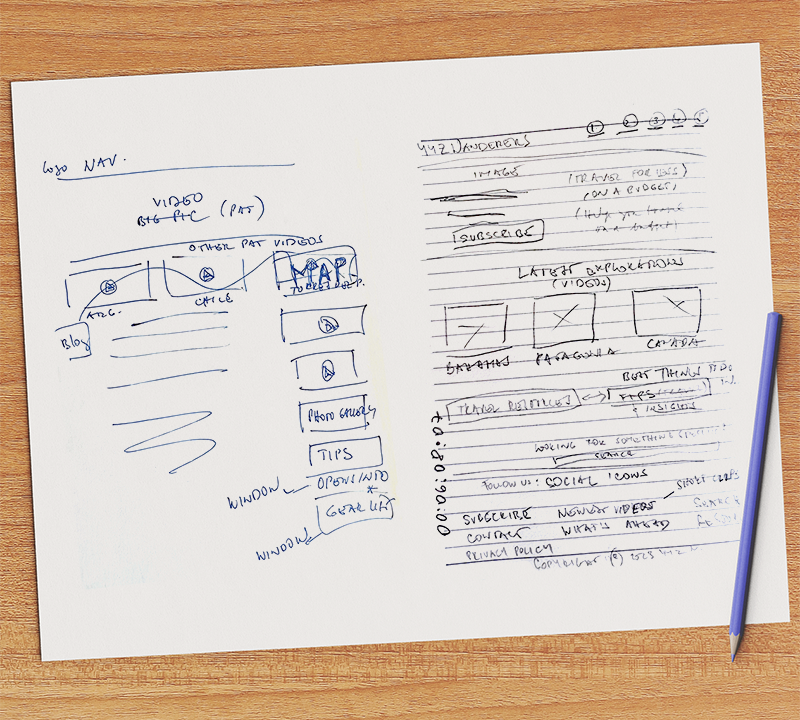 Logo NAV.
VIDEO
BIG PIC (PAT)
OTHER PAT VIDEOS
MAP
ARG.
CHILE
Blog
PHOTO GALLERY
TIPS
OPENS INFO
WINDOW
GEAR LIST
WINDOW
1 2 3 4 5
YYZ WANDERERS
IMAGE
(TRAVEL FOR LESS)
(ON A BUDGET)
(Help you travel
on a budget)
SUBSCRIBE
LATEST EXPLORATIONS
(VIDEOS)
BAHAMAS
PATAGONIA
CANADA
BEST THINGS TO DO
IN.
TRAVEL RESOURCES
TIPS
& INSIGHTS
LOOKING FOR SOMETHING
SEARCH
FOLLOW US: SOCIAL ICONS
SHORT CLIPS
SUBSCRIBE NEWEST VIDEOS SEARCH
CONTACT WHAT'S AHEAD
PRIVACY POLICY
COPYRIGHT (c) 2023